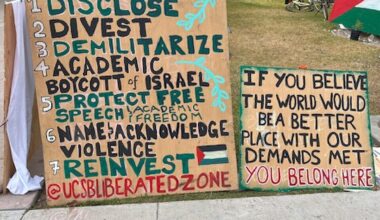 1 DISCLOSE
2 DIVEST
3 DEMILITARIZE
4 ACADEMIC
BOYCOTT OF ISRAEL
5 PROTECT FREE
SPEECH & ACADEMIC
FREEDOM
6 NAME & ACKNOWLEDGE
VIOLENCE
7 REINVEST
@UCSBLIBERATEDZONE
IF YOU BELIEVE
THE WORLD WOULD
BE A BETTER
PLACE WITH OUR
DEMANDS MET
YOU BELONG HERE